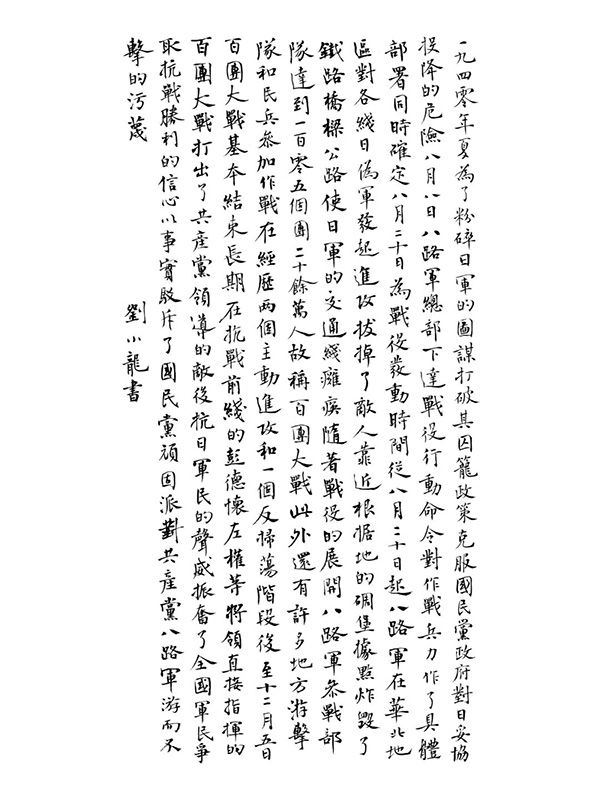 一九四零年夏為了粉碎日軍的圖謀打破其囚籠政策克服國民黨政府對日妥協
投降的危險八月八日八路軍總部下達戰役行動命令對作戰兵力作了具體
部署同時確定八月二十日為戰役發動時間從八月二十日起八路軍在華北地
區對各綫日偽軍發起進攻拔掉了敵人靠近根据地的碉堡據點炸毀了
鐵路橋樑公路使日軍的交通綫癱瘓隨著戰役的展開八路軍參戰部
隊達到一百零五個團二十餘萬人故稱百團大戰此外還有許多地方游擊
隊和民兵參加作戰在經歷两個主動進攻和一個反掃蕩階段後至十二月五日
百團大戰基本結束長期在抗戰前綫的彭德懷左權等將領直接指揮的
百團大戰打出了共產黨領導的敵後抗日軍民的聲威振奮了全國軍民爭
取抗戰勝利的信心以事實駁斥了國民黨頑固派對共產黨八路軍游而不
擊的污蔑
劉小龍書